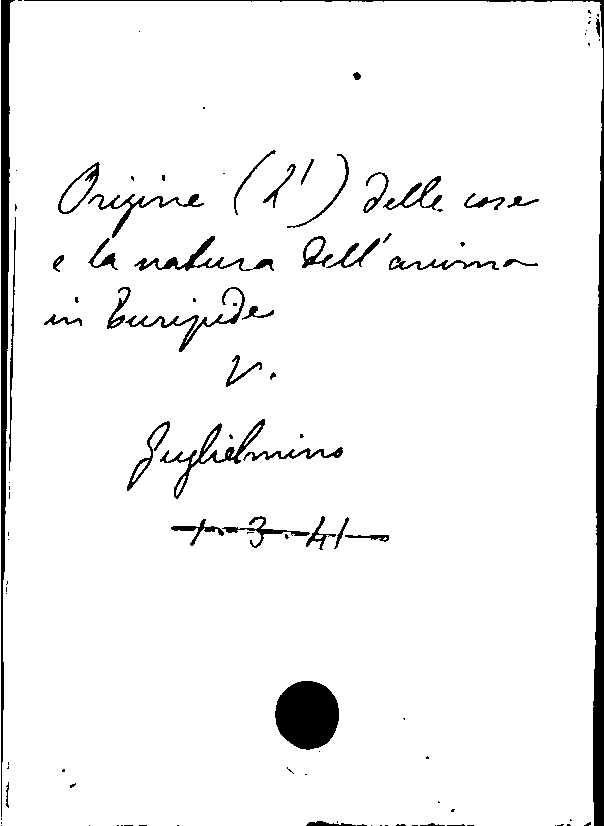 Origine (L') delle cose
e la natura dell'anima
in Euripide
V.
Guglielmino
1.3.41